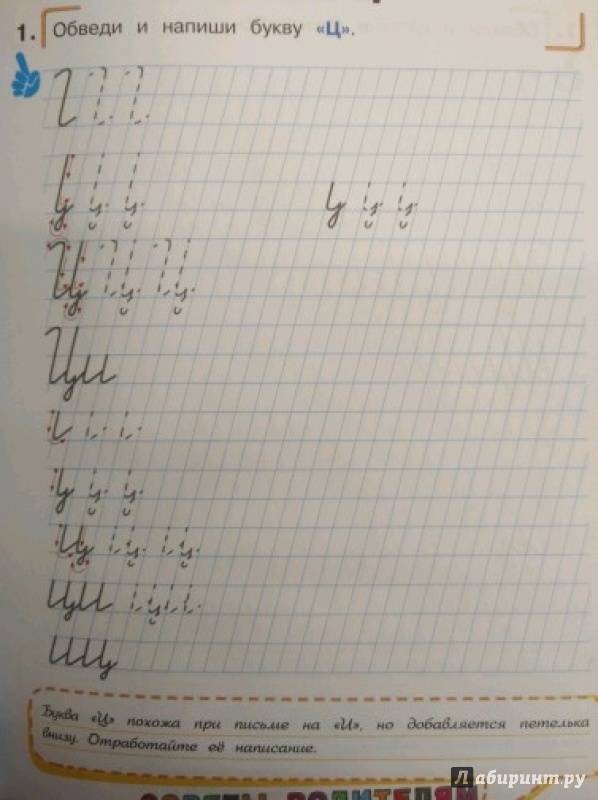 1. Обведи и напиши букву «Ц».
Ци
ци ци
иц
Буква «Ц» похожа при письме на «И», но добавляется петелька
внизу. Отработайте её написание.
СОВЕТЫ РОДИТЕЛЯМ
Лабиринт.ру